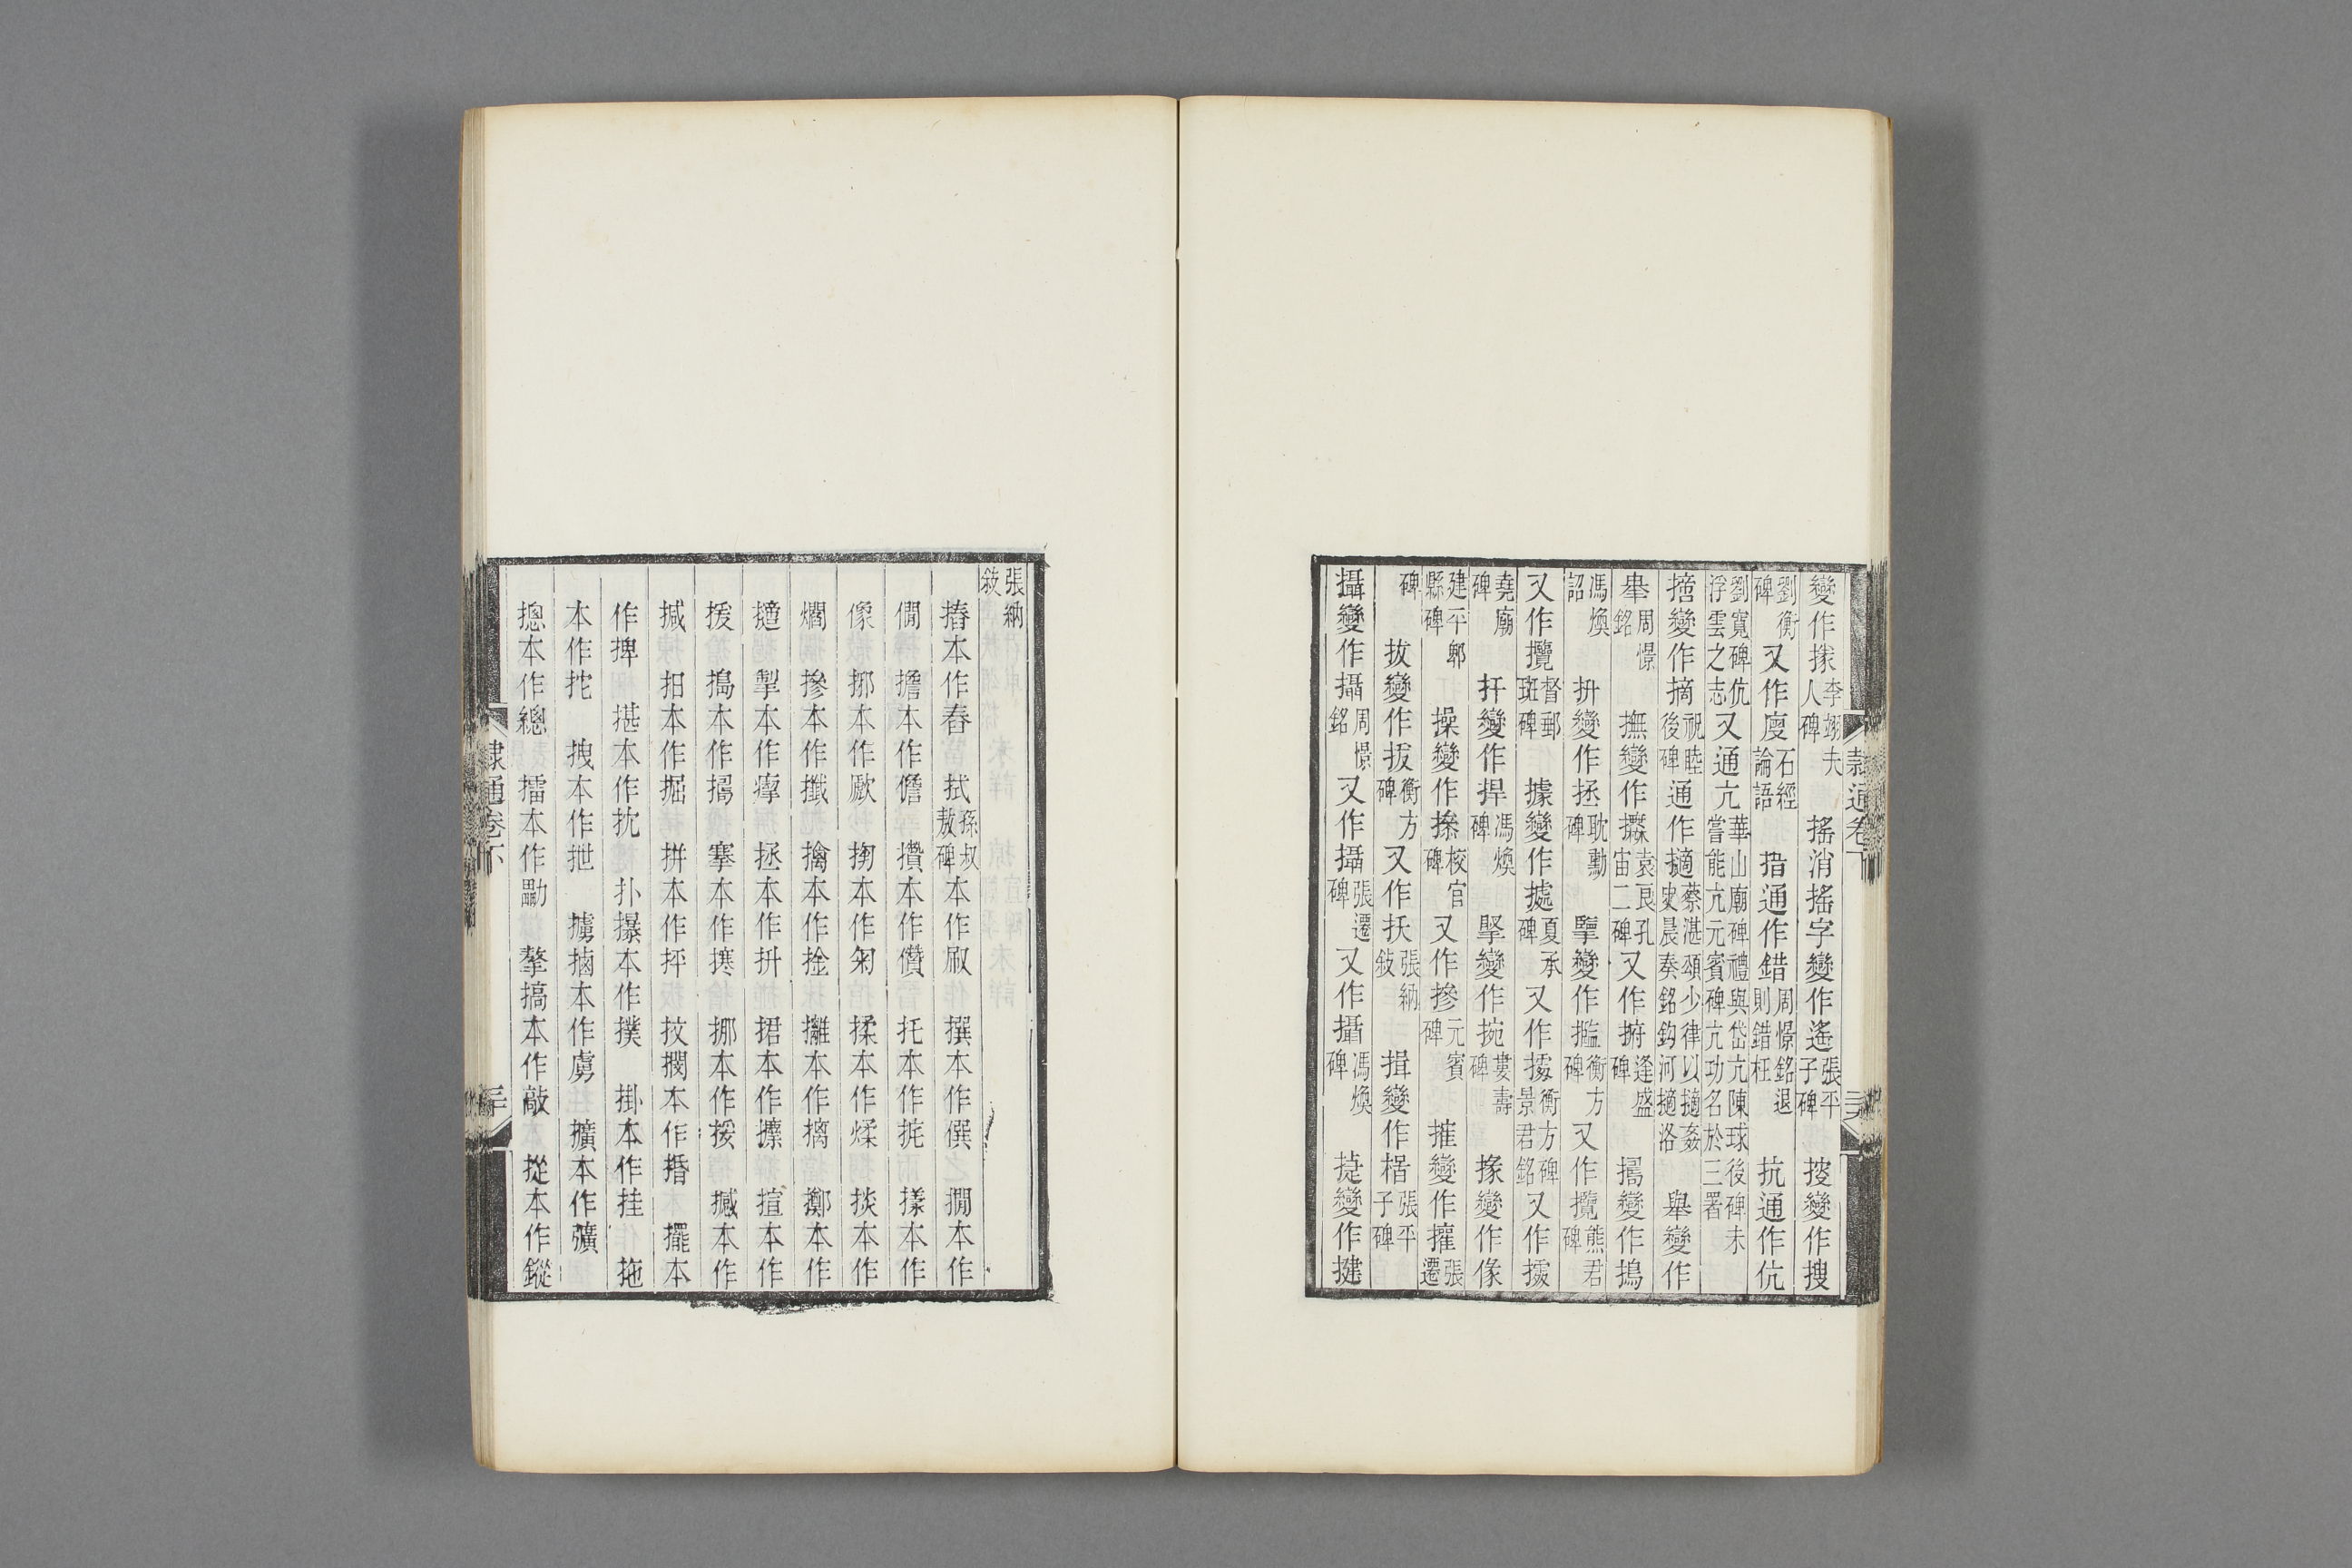 變作㨲李翊夫人碑 搖消搖字變作遙張平子碑 挍變作搜
劉衡碑又作廋石經論語 措通作錯周憬銘退則錯枉 抗通作伉
劉寬碑伉浮雲之志又通亢華山廟碑禮與岱亢陳球後碑未嘗能亢元賓碑亢功名於三署
擿變作摘祝睦後碑通作擿蔡湛頌少律以擿姦史晨奏銘鈎河擿洛 舉變作
㪯周憬銘 撫變作橅袁良孔宙二碑又作捬逢盛碑 搗變作擣
馮煥詔 抍變作拯耿勳碑 擥變作㩜衡方碑又作攬熊君碑
又作攬督郵班碑 據變作㨿夏承碑又作㩀衡方碑景君銘又作㩀
堯廟碑 扞變作捍馮煥碑 掔變作捥婁壽碑 㨼變作像
建平郫縣碑 操變作摻校官碑又作摻元賓碑 摧變作㩁張遷
碑 抜變作拔衡方碑又作扷張納敍 揖變作楫張平子碑
攝變作攝周憬銘又作攝張遷碑又作攝馮煥碑 㨗變作揵
隸通卷下
張納敍
摏本作舂 拭孫叔敖碑本作㕞 撰本作僎 撊本作
僩 擔本作儋 攢本作儹 托本作㧌 㨾本作
像 揤本作厭 掬本作匊 揉本作煣 掞本作
爓 摻本作攕 擒本作捦 攡本作摛 擲本作
擿 掣本作㿑 拯本作抍 捃本作攈 揎本作
援 搗本作擣 搴本作㩃 挪本作捼 撼本作
㨔 抇本作掘 拼本作抨 抆捫本作捪 擺本
作捭 揕本作抌 扑㩧本作撲 掛本作挂 拖
本作拕 拽本作抴 擄掳本作虜 擴本作彉
摠本作總 擂本作勵 擎搞本作敲 摐本作鏦
隸通卷下